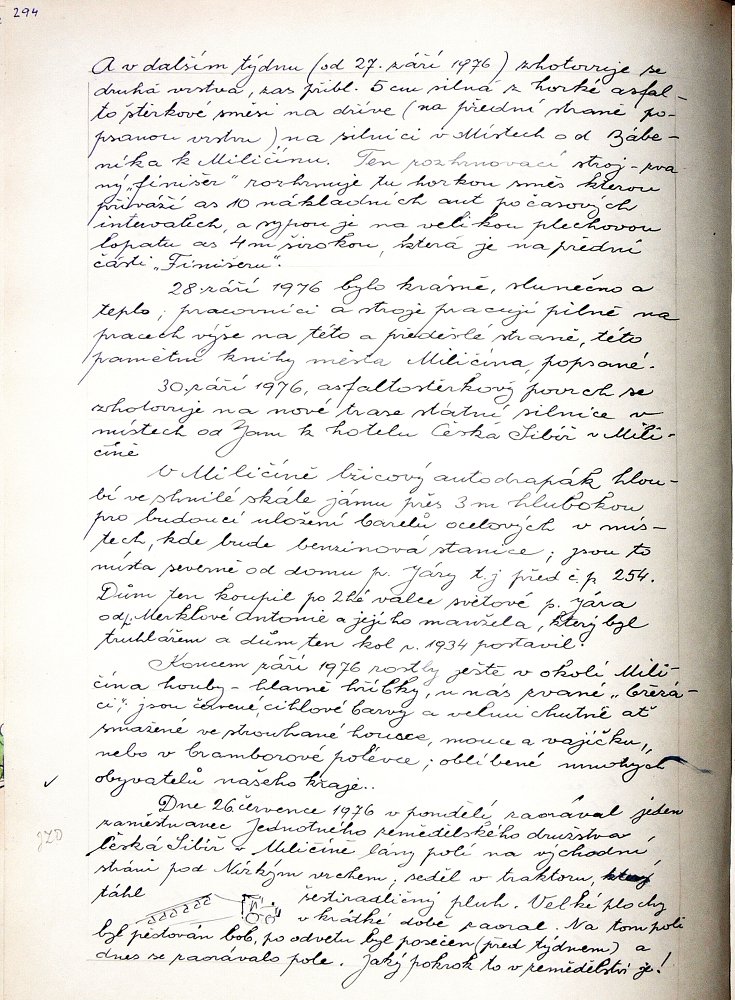 294
A v dalším týdnu (od 27. září 1976) zhotovuje se
druhá vrstva, zas přibl. 5 cm silná z horké asfal-
to štěrkové směsi na dříve (na přední straně po-
psanou vrstvu) na silnici v místech od Zábe-
níka k Miličínu. Ten rozhrnovací stroj - zva-
ný „finišer“ rozhrnuje tu horkou směs kterou
přiváží as 10 nákladních aut po časových
intervalech, a sypou je na velikou plechovou
lopatu as 4 m širokou, která je na přední
části „Finišeru“.
28. září 1976 bylo krásně, slunečno a
teplo; pracovníci a stroje pracují pilně na
pracech výše na této a předešlé straně, této
pamětní knihy města Miličína, popsané.
30. září 1976, asfaltoštěrkový povrch se
zhotovuje na nové trase státní silnice v
místech od Jam k hotelu Česká Sibiř v Mili-
číně
V Miličíně lžicový autodrapák hlou-
bí ve shnilé skále jámu přes 3 m hlubokou
pro budoucí uložení barelů ocelových v mís-
tech, kde bude benzinová stanice; jsou to
místa severně od domu p. Járy t.j před č.p. 254.
Dům ten koupil po 2hé válce světové p. Jára
od p. Merklové Antonie a jejího manžela, který byl
truhlářem a dům ten kol r. 1934 postavil.
Koncem září 1976 rostly ješte v okolí Mili-
čína houby - hlavně hříbky, u nás zvané
jsou červené, cihlové barvy a velmi chutné ať
smažené ve strouhané housce, mouce a vajíčku,
nebo v bramborové polévce; oblíbené mnohých
obyvatelů našeho kraje..
✓
Dne 26 července 1976 v pondělí zaorával jeden
JZD
zaměstnanec Jednotného zemědělského družstva
Česká Sibiř v Miličíně lány polí na východní
stráni pod Nízkým vrchem; seděl v traktoru, který
táhl šestiradličný pluh. Velké plochy
v krátké době zaoral. Na tom poli
byl pěstován bob, po odvetu byl posečen (před týdnem) a
dnes se zaorávalo pole. Jaký pokrok to v zemědělství je!